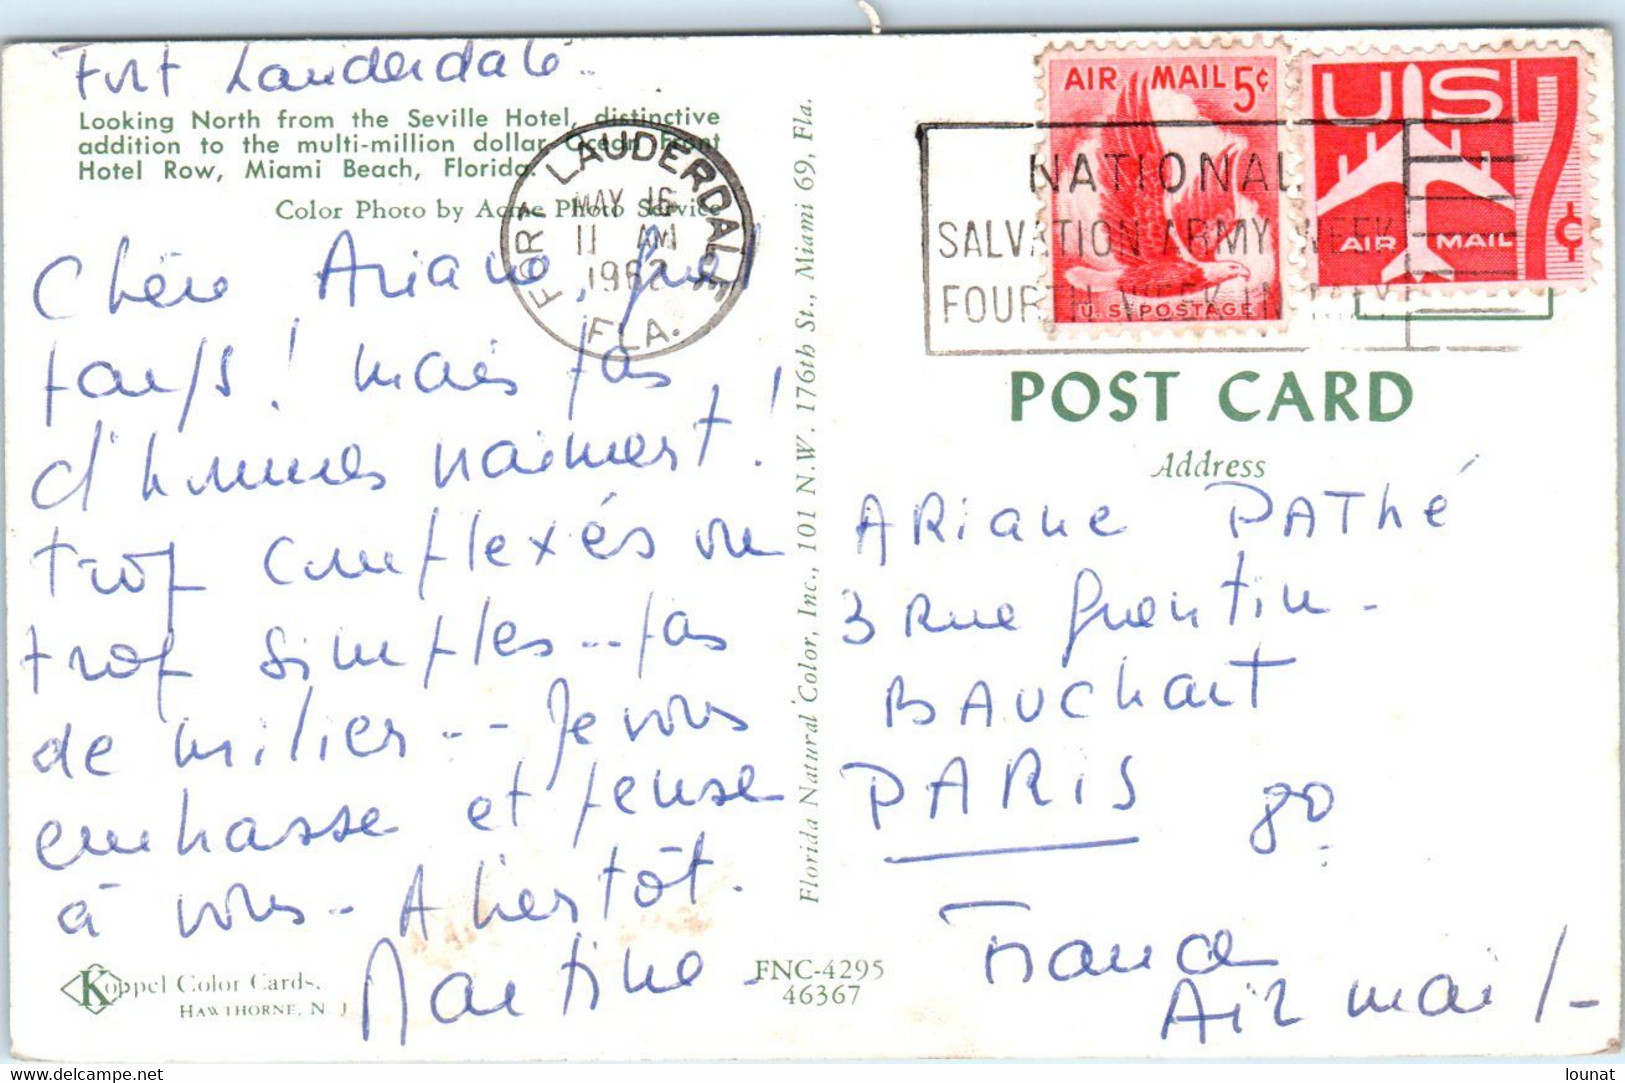 Fort Lauderdale..
Looking North from the Seville Hotel, distinctive
addition to the multi-million dollar Ocean Front
Hotel Row, Miami Beach, Florida.
Color Photo by Acme Photo Service
FORT LAUDERDALE
MAY 16
11 AM
1962
FLA.
Chère Ariane, quel
pays! mais pas
d'hommes vraiment!
trop complexés ou
trop simples... pas
de milieu... Je vous
embrasse et pense
à vous.. A bientôt.
Martine
Koppel Color Cards.
HAWTHORNE, N J
FNC-4295
46367
Florida Natural Color, Inc., 101 N.W. 176th St., Miami 69, Fla.
AIR MAIL 5¢
U.S. POSTAGE
US 7¢
AIR MAIL
NATIONAL
SALVATION ARMY WEEK
FOURTH WEEK IN MAY
POST CARD
Address
ARiane PAThé
3 Rue Quentin-
BAUChart
PARiS 8e
France
Air mail
lounat
delcampe.net